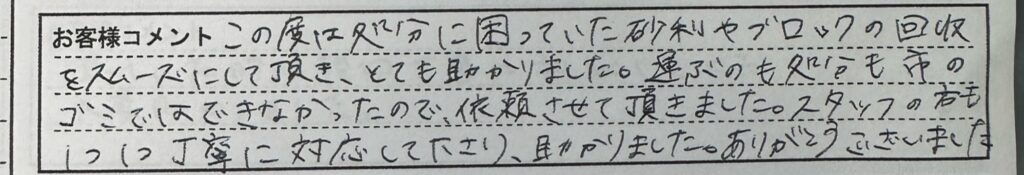 お客様コメント この度は処分に困っていた砂利やブロックの回収
をスムーズにして頂き、とても助かりました。運ぶのも処分も市の
ゴミではできなかったので、依頼させて頂きました。スタッフの方も
1つ1つ丁寧に対応して下さり、助かりました。ありがとうございました